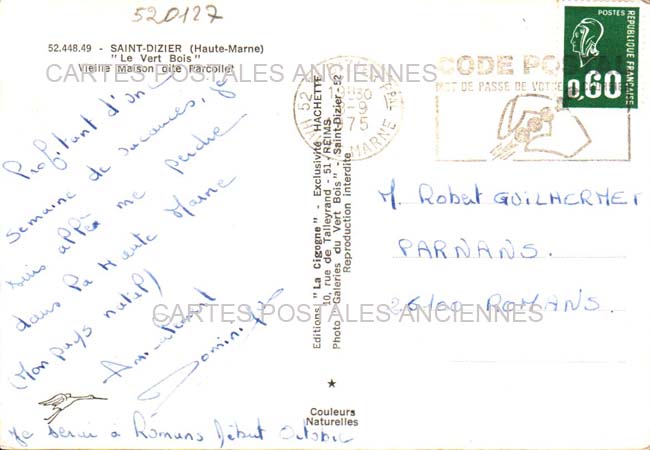 520127
52.448.49 - SAINT-DIZIER (Haute-Marne)
"Le Vert Bois"
Vieille Maison dite Parcollet
CARTES POSTALES ANCIENNES
Profitant d'une
semaine de vacances, je
suis allée me perdre
dans la Haute Marne
(Mon pays natal)
Amicalement
Dominique
Je serai à Romans début Octobre
Editions "La Cigogne" - Exclusivité HACHETTE
10, rue de Talleyrand - 51/REIMS
Photo Galeries du Vert Bois - Saint-Dizier - 52
Reproduction interdite
Couleurs
Naturelles
52
-9
75
HAUTE MARNE
CODE POSTAL
MOT DE PASSE DE VOTRE
POSTES
REPUBLIQUE FRANÇAISE
0,60
M. Robert GUILHERMET
PARNANS.
26100 ROMANS.
CARTES POSTALES ANCIENNES